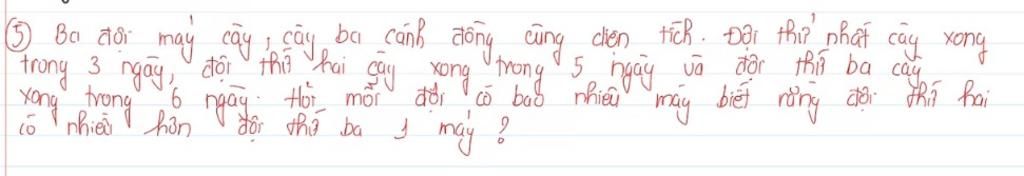 ⑤ Ba đội máy cày, cày ba cánh đồng cùng diện tích. Đội thứ nhất cày xong
trong 3 ngày, đội thứ hai cày xong trong 5 ngày và đội thứ ba cày
xong trong 6 ngày. Hỏi mỗi đội có bao nhiêu máy biết rằng đội thứ hai
có nhiều hơn đội thứ ba 1 máy?